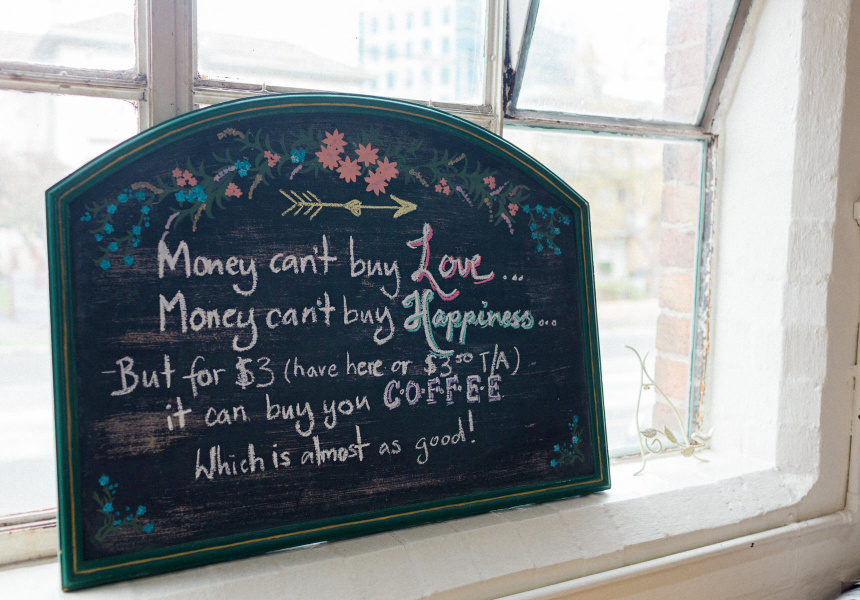 Money can't buy Love...
Money can't buy Happiness...
But for $3 (have here or $3⁵⁰ T/A)
it can buy you C·O·F·F·E·E
Which is almost as good!